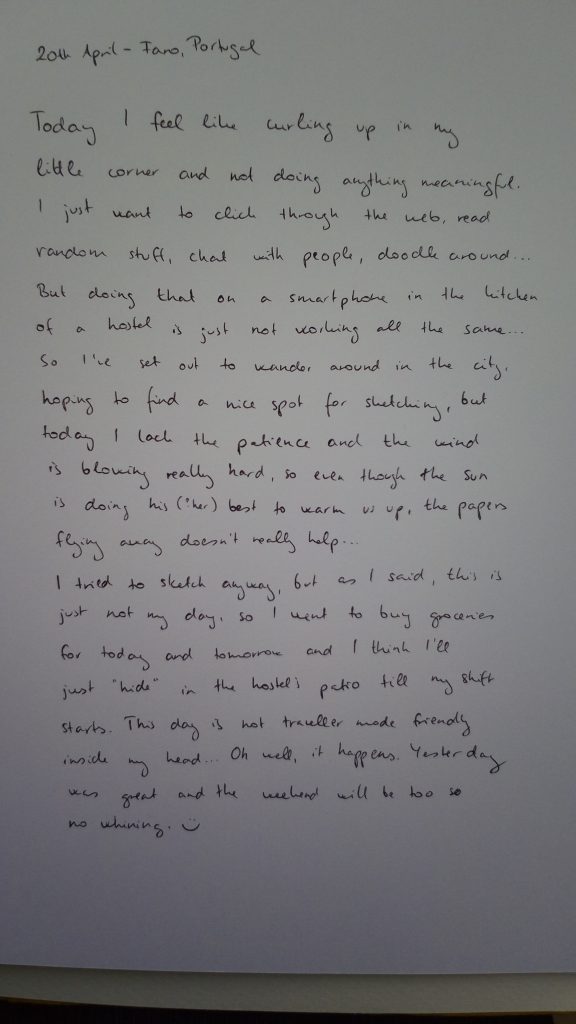 20th April - Faro, Portugal
Today I feel like curling up in my
little corner and not doing anything meaningful.
I just want to click through the web, read
random stuff, chat with people, doodle around...
But doing that on a smartphone in the kitchen
of a hostel is just not working all the same...
So I've set out to wander around in the city,
hoping to find a nice spot for sketching, but
today I lack the patience and the wind
is blowing really hard, so even though the sun
is doing his (?her) best to warm us up, the papers
flying away doesn't really help...
I tried to sketch anyway, but as I said, this is
just not my day, so I went to buy groceries
for today and tomorrow and I think I'll
just "hide" in the hostel's patio till my shift
starts. This day is not traveller mode friendly
inside my head... Oh well, it happens. Yesterday
was great and the weekend will be too so
no whining. :)